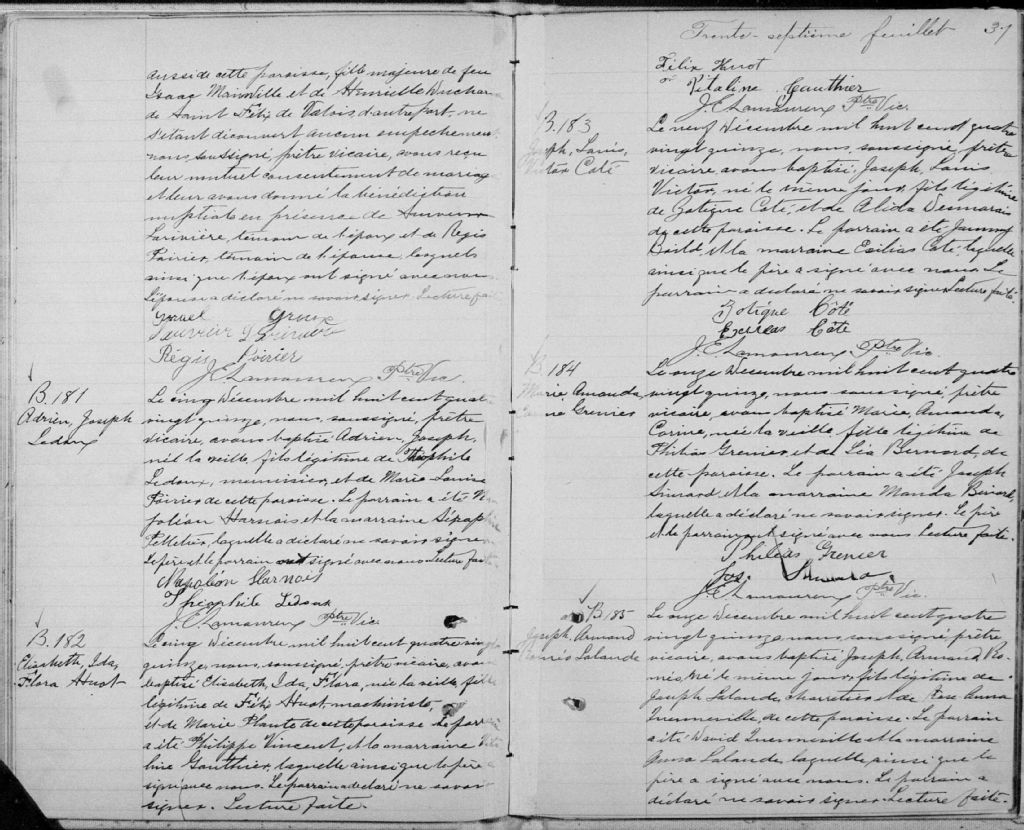 aussi de cette paroisse, fille majeure de feu
Isaac Mainville et de Henriette Duchar
de Saint Félix de Valois d'autre part, ne
s'étant découvert aucun empêchement
nous soussigné, prêtre vicaire, avons reçu
leur mutuel consentement de mariage
et leur avons donné la bénédiction
nuptiale en présence de
Larivière, témoin de l'époux et de Régis
Poirier, témoin de l'épouse, lesquels
ainsi que l'époux ont signé avec nous
L'épouse a déclaré ne savoir signer. Lecture faite
Israel Groux
Régis Poirier
J. E. Lamoureux Ptre Vic.
B. 181
Adrien, Joseph
Ledoux
Le cinq Décembre mil huit cent quatre
vingt quinze, nous, soussigné, prêtre
vicaire, avons baptisé Adrien, Joseph,
né la veille, fils légitime de Théophile
Ledoux, menuisier, et de Marie Louise
Poirier de cette paroisse. Le parrain a été Na
poléon Harnois, et la marraine Séraphine
Pelletier, laquelle a déclaré ne savoir signer
Le père et le parrain ont signé avec nous. Lecture faite
Napoléon Harnois
Théophile Ledoux
J. E. Lamoureux ptre Vic.
B. 182
Elisabeth, Ida,
Flora Huot
Le cinq Décembre mil huit cent quatre vingt
quinze, nous, soussigné, prêtre vicaire, avons
baptisé Elisabeth, Ida, Flora, née la veille, fille
légitime de Félix Huot, machiniste,
et de Marie Plante de cette paroisse. Le parrain
a été Philippe Vincent, et la marraine Vita
line Gauthier, laquelle ainsi que le père a
signé avec nous. Le parrain a déclaré ne savoir
signer. Lecture faite.
Trente-septième feuillet 37
Félix Huot
Vitaline Gauthier
J. E. Lamoureux Ptre Vic.
B. 183
Joseph, Louis,
Victor Coté
Le neuf Décembre mil huit cent quatre
vingt quinze, nous, soussigné, prêtre
vicaire, avons baptisé, Joseph, Louis
Victor, né le même jour, fils légitime
de Zotique Coté, et de Alida Desmarais
de cette paroisse. Le parrain a été
et la marraine Exilias Coté, laquelle
ainsi que le père a signé avec nous. Le
parrain a déclaré ne savoir signer. Lecture faite.
Zotique Côté
Exilias Côté
J. E. Lamoureux Ptre Vic.
B. 184
Marie, Amanda,
Corinne Grenier
Le onze Décembre mil huit cent quatre
vingt quinze, nous soussigné, prêtre
vicaire, avons baptisé Marie, Amanda,
Corine, née la veille, fille légitime de
Philias Grenier, et de Léa Bernard, de
cette paroisse. Le parrain a été Joseph
Simard, et la marraine Manda
laquelle a déclaré ne savoir signer. Le père
et le parrain ont signé avec nous. Lecture faite.
Philéas Grenier
Jos. Simard
J. E. Lamoureux ptre Vic.
B. 185
Joseph, Armand
Roméo Lalande
Le onze Décembre mil huit cent quatre
vingt quinze, nous, soussigné, prêtre
vicaire, avons baptisé Joseph, Armand, Ro-
méo, né le même jour, fils légitime de
Joseph Lalande, charretier, et de Rose Anna
Quenneville, de cette paroisse. Le parrain
a été David Quenneville et la marraine
Anna Lalande, laquelle ainsi que le
père a signé avec nous. Le parrain a
déclaré ne savoir signer. Lecture faite.